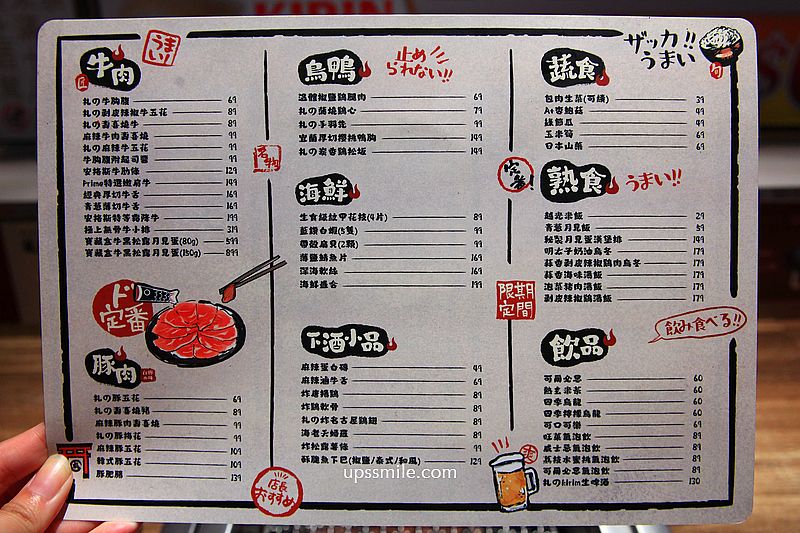 KIRIN
牛肉
うまい!
札の牛胸腹 69
札の剥皮辣椒牛五花 89
札の壽喜燒牛 89
麻辣牛肉壽喜燒 99
札の麻辣牛五花 99
牛胸腹附起司醬 99
安格斯牛肋條 129
Prime特選嫩肩牛 149
經典厚切牛舌 169
青蔥薄切牛舌 169
安格斯特等霜降牛 199
極上無骨牛小排 319
寶藏盒牛黑松露月見蛋(80g) 599
寶藏盒牛黑松露月見蛋(150g) 899
ド定番
豚肉
札の豚五花 69
札の壽喜燒豬 89
麻辣豚肉壽喜燒 99
札の豚梅花 99
麻辣豚五花 109
韓式豚五花 109
豚肥腸 139
店長おすすめ
名物
鳥鴨
止められない!!
溫體椒鹽鷄腿肉 69
札の蒲燒鷄心 79
札の手羽先 99
宜蘭厚切櫻桃鴨胸 149
札の炭香鷄松坂 149
海鮮
生食級紋甲花枝(4片) 89
藍鑽白蝦(5隻) 99
帶殼扇貝(2顆) 99
薄鹽鯖魚片 169
深海軟絲 169
海鮮盛合 199
下酒小品
麻辣蛋白磚 49
麻辣滷牛舌 69
炸唐揚鷄 69
炸鷄軟骨 69
札の炸名古屋鷄翅 89
海老天婦羅 89
炸松露薯條 99
酥脆魚下巴(椒鹽/泰式/和風) 129
定番!
限期定間
蔬食
ザッカ!!うまい
旬
包肉生菜(可續) 39
A+杏鮑菇 49
綠節瓜 49
玉米筍 69
日本山藥 69
熟食
うまい!!
越光米飯 29
青蔥月見飯 59
秘製月見蛋漢堡排 149
明太子奶油烏冬 179
蒜香剝皮辣椒鷄肉烏冬 179
蒜香海味湯飯 179
泡菜豬肉湯飯 179
剝皮辣椒鷄湯飯 179
飲み食べる!!
飲品
可爾必思 60
熱玄米茶 60
四季烏龍 60
四季檸檬烏龍 60
可口可樂 69
旺萊氣泡飲 89
威士忌氣泡飲 89
荔枝水蜜桃氣泡飲 89
可爾必思氣泡飲 89
札のkirin生啤酒 130
upssmile.com